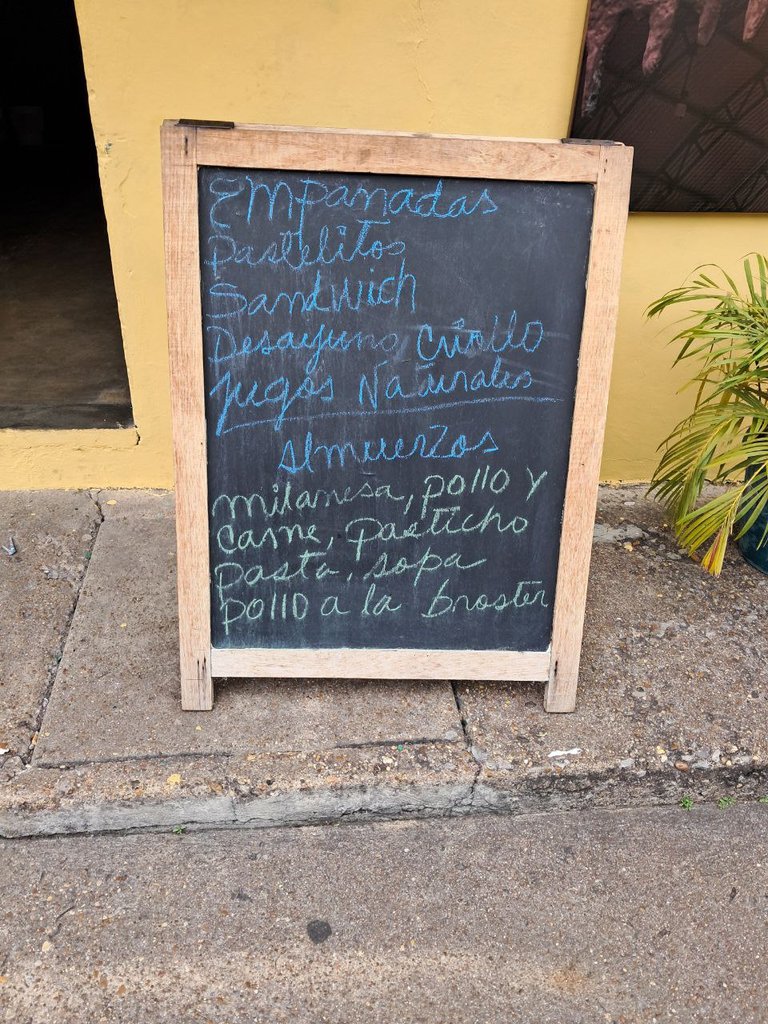 Empanadas
Pastelitos
Sandwich
Desayuno Criollo
Jugos Naturales
Almuerzos
milanesa, pollo y
carne, pasticho
pasta, sopa
pollo a la broster